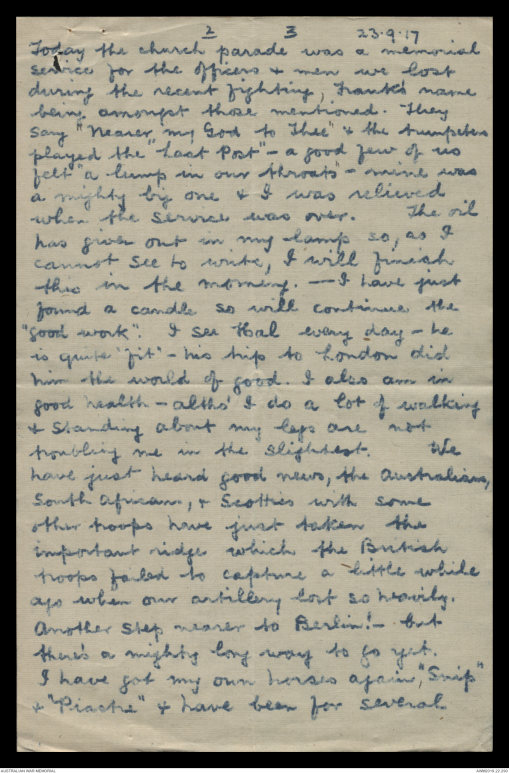 2 3 23.9.17
Today the church parade was a memorial
service for the officers & men we lost
during the recent fighting, Frank's name
being amongst those mentioned. They
say "Nearer my God to Thee" & the trumpeters
played the "Last Post" - a good few of us
felt "a lump in our throats" - mine was
a mighty big one & I was relieved
when the service was over. The oil
has given out in my lamp so, as I
cannot see to write, I will finish
this in the morning. — I have just
found a candle so will continue the
"good work". I see Hal every day - he
is quite "fit" - his trip to London did
him the world of good. I also am in
good health - altho' I do a lot of walking
& standing about my legs are not
troubling me in the slightest. We
have just heard good news, the Australians,
South Africans, & Scotties with some
other troops have just taken the
important ridge which the British
troops failed to capture a little while
ago when our artillery lost so heavily.
Another step nearer to Berlin! - but
there's a mighty long way to go yet.
I have got my own horses again, "Snip"
& "Piache" & have been for several
AUSTRALIAN WAR MEMORIAL